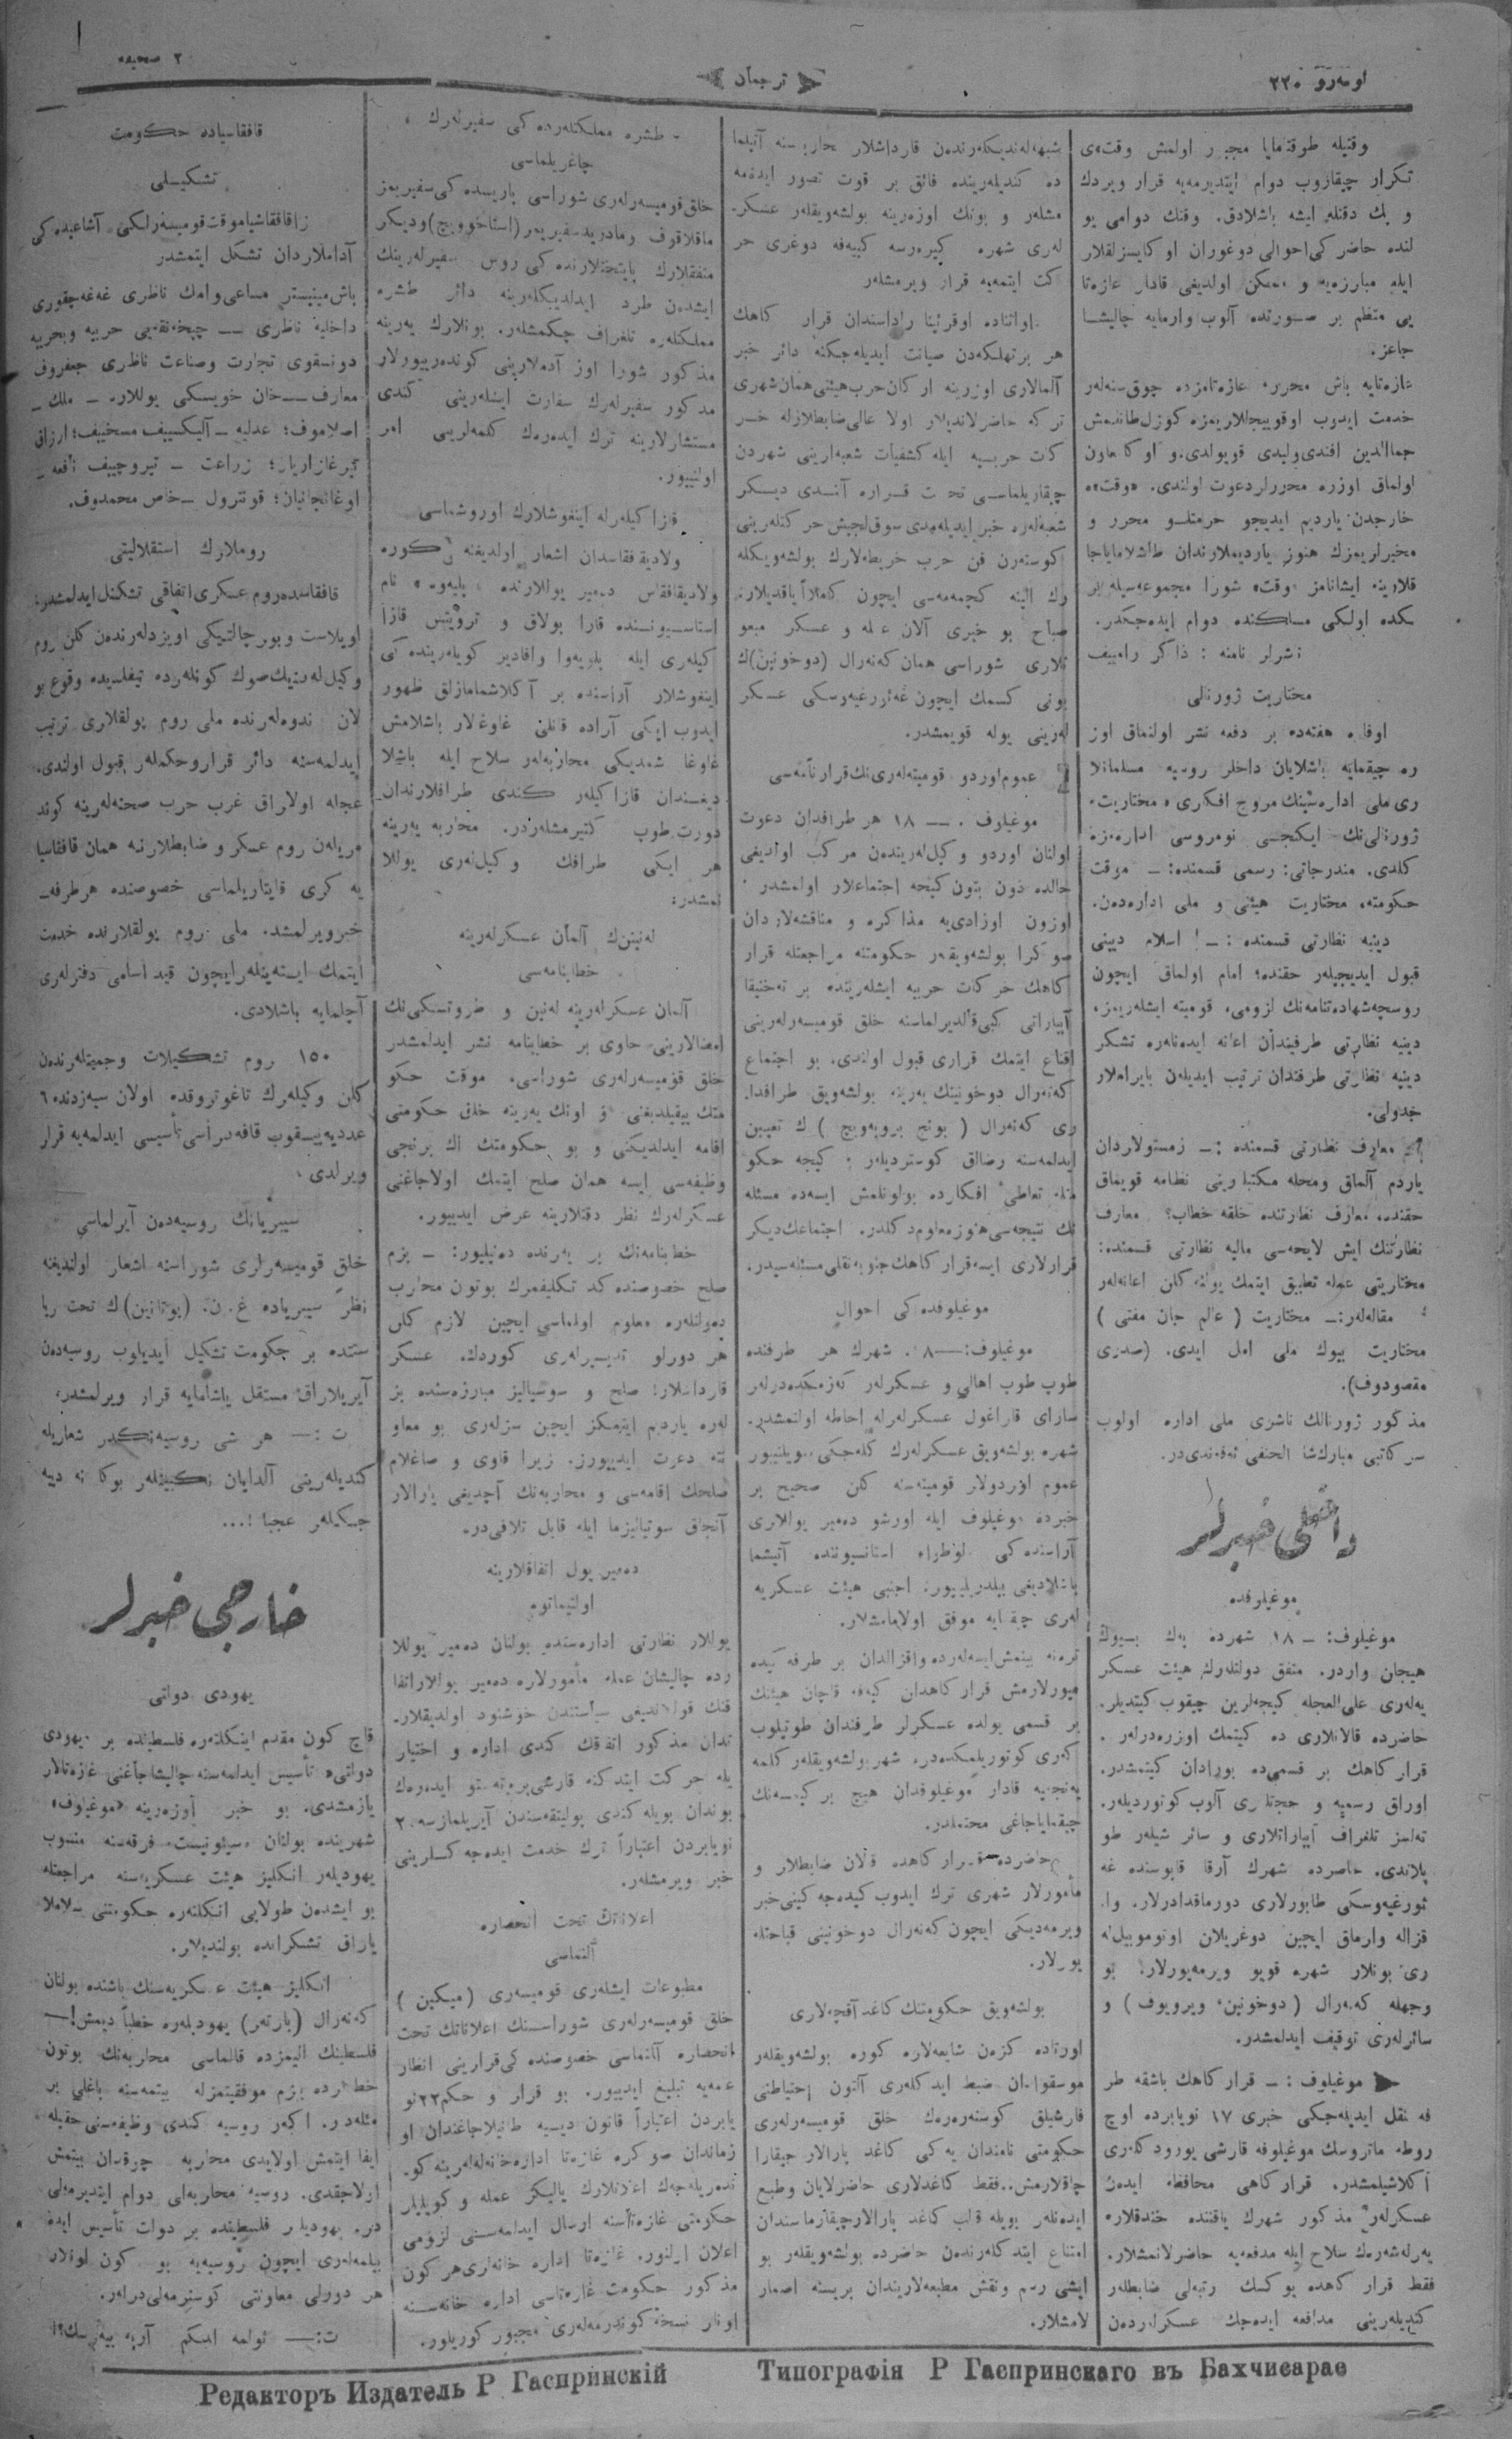 نومەرۇ ٢٢٠
ترجمان
٢ صحیفە
وقتیله طوقتامایا مجبور اولمش وقت‌ەی
تكرار چیقاروب دوام ایتدیرمەیە قرار ویردك
و بك دقتلە ایشە باشلادق. وقتك دوامی یو
لندە حاضر كی احوالی دوغوران اوكایسزلقلار
ایلە مبارزەیە و ممكن اولدیغی قادار غازەتا
یی منتظم بر صورتدە آلوب وارمایە چالیشا
جاغز.
غازەتایە باش محررە غازەتامزدە چوق سنەلەر
خدمت ایدوب اوقوییجیلاریمزە كوزل طانلمش
جمالالدین افندی ولیدی قویولدی. و اوكا معاون
اولماق اوزرە محررلر دعوت اولندی. «وقت»ە
خارجدن یاردیم ایدیجو حرمتلو محرر و
مخبرلریمزك هنوز یاردیملارندان طاشلامایاجا
قلارینە ایشانامز. «وقت» شورا مجموعەسیلە بر
لكدە اولكی مسلكندە دوام ایدەجكدر.
ناشرلر نامنە : ذاكر رامییف
مختاریت ژورنالی
اوفادە هفتەدە بر دفعە نشر اولنماق اوز
رە چیقمایە باشلایان داخلر روسیە مسلمانلا
ری ملی ادارەسنك مروج افكاری «مختاریت»
ژورنالی‌نك ایكنجی نومروسی ادارەمزە
كلدی. مندرجاتی: رسمی قسمندە: ـ موقت
حكومتە، مختاریت هیئتی و ملی ادارەدن.
دینیە نظارتی قسمندە : ـ اسلام دینی
قبول ایدیجیلەر حقندە؛ امام اولماق ایچون
روسچە شهادەتنامەنك لزومی، قومیتە ایشلەریمز.
دینیە نظارتی طرفیندان اعانە ایدەنلەرە تشكر
دینیە نظارتی طرفندان ترتیب ایدیلەن بایراملار
جدولی.
معارف نظارتی قسمندە : ـ زمستولاردان
یاردم آلماق و محلە مكتبلارینی نظامە قویماق
حقندە. معارف نظارتندە خلقە خطاب؟ معارف
نظارتنك ایش لایحەسی مالیە نظارتی قسمندە:
مختاریتی عملە تطبیق ایتمك یولنە كلن اعانەلەر
مقالەلەر: ـ مختاریت ( عالم جان مفتی )
مختاریت بیوك ملی امل ایدی. (صدری
مقصودوف).
مذكور ژورنالك ناشری ملی ادارە اولوب
سر كاتبی مبارك‌شا الحنفی ئەفەندی در.
داخلی خبرلر
موغیلوفدە
موغیلوف: ـ ١٨ شهردە پەك بیوك
هیجان واردر. متفق دولتلەرك هیئت عسكر
یەلەری علی‌العجلە كیجەلرین چیقوب كیتدیلر.
حاضردە قالانلاری دە كیتمك اوزرەدرلەر.
قرار كاهك بر قسمی دە بورادان كیتمشدر.
اوراق رسمیە و حجتلری آلوب كوتوردیلەر.
تەلسز تلغراف آپپاراتلاری و سائر شیلەر طو
پلاندی. حاضردە شهرك آرقا قاپوسندە غە
ئورغیەوسكی طابورلاری دورماقدادرلار. وا
قزالە وارماق ایچین دوغریلان اوتوموبیل‌لە
ری بونلار شهرە قویو ویرمەیورلار. بو
وجهلە كەنەرال (دوخونین، ویرویوف) و
سائرلەری توقیف ایدلمشدر.
موغیلوف : ـ قرار كاهك باشقە طر
فە نقل ایدیلەجكی خبری ١٧ نویابردە اوچ
روطە ماتروسك موغیلوفە قارشی یورودكلەری
آكلاشیلمشدر. قرار كاهی محافظە ایدەن
عسكرلەر مذكور شهرك یاقنندە خندقلارە
یەرلەشەرك سلاح ایلە مدفعەیە حاضرلانمشلار.
فقط قرار كاهدە یوكسك رتبەلی ضابطلەر
كندیلەرینی مدافعە ایدەجك عسكرلردەن
شبهەلەندیكلەرندەن قارداشلار محاربەسنە آتیلما
دە كندیلەریندە فائق بر قوت تصور ایدەمە
مشلەر و بونك اوزەرینە بولشەویقلەر عسكر
لەری شهرە كیرەرسە كیپەفە دوغری حر
كت ایتمەیە قرار ویرمشلەر
اواثنادە اوقرئینا راداسندان قرار كاهك
هر بر تهلكەدن صیانت ایدیلەجكنە دائر خبر
آلمالاری اوزرینە اركان حرب هیئتی همان شهری
تركە حاضرلاندیلار. اولا عالی ضابطلارلە حر
كات حربیە ایلە كشفیات شعبەلرینی شهردن
چقاریلماسی تحت قرارە آلندی دیكر
شعبەلەرە خبر ایدیلەمەدی سوق‌الجیش حر كتلەرینی
كوستەرن فن حرب خریطەلارك بولشەویكلە
رك الینە كچمەمەسی ایچون كاملاً یاقدیلار.
صباح بو خبری آلان عملە و عسكر مبعو
ثلاری شوراسی همان كەنەرال (دوخونین)ك
یونی كسمك ایچون غەئورغیەوسكی عسكر
لەرینی یولە قویمشدر.
عموم اوردو قومیتەلەری‌نك قرارنامەسی
موغیلوف . — ١٨ هر طرافدان دعوت
اولنان اوردو وكیل‌لەریندەن مركب اولدیغی
حالدە دون بتون كیجە اجتماعلار اولمشدر.
اوزون اوزادی‌یە مذاكرە و مناقشەلاردان
صوكرا بولشەویقلەر حكومتنە مراجعتلە قرار
كاهك حركات حربیە ایشلەریندە بر تەخنیقا
آپپاراتی كبی قالدیرلماسنە خلق قومیسەرلەرینی
اقناع ایتمك قراری قبول اولندی. بو اجتماع
كەنەرال دوخونینك یەرینە بولشەویق طرافدا
ری كەنەرال ( بونچ برویەویچ ) ك تعیین
ایدلمەسنە رضالق كوستردیلەر ؛ كیجە حكو
متلە تعاطئ افكاردە بولونلمش ایسەدە مسئلە
نك نتیجەسی هنوز معلوم دكلدر. اجتماعك دیكر
قرارلاری ایسە قرار كاهك جنوبە نقلی مسئلەسیدر.
موغیلوفدەكی احوال
موغیلوف: — ١٨. شهرك هر طرفندە
طوپ طوپ اهالی و عسكرلەر كەزمكدەدرلەر
سارای قاراغول عسكرلەرلە احاطە اولنمشدر.
شهرە بولشەویق عسكرلەرك كلەجكی سویلنیور
عموم اوردولار قومیتەسنە كلن صحیح بر
خبردە موغیلوف ایلە اورشو دەمیر یوللاری
آراسندەكی لوطراە استانسیونندە آتیشما
باشلادیغی بیلدیریلیور؛ اجنبی هیئت عسكریە
لەری چقمایە موفق اولامامشلار.
ترەنە بینمش ایسەلەردە واقزالدان بر طرفە كیدە
میورلارمش قرار كاهدان كیەفە قاچان هیئتك
بر قسمی یولدە عسكرلر طرفندان طوتیلوب
كەری كوتوریلمكدەدر. شهر بولشەویقلەر كلمە
یەنجەیە قادار موغیلوفدان هیچ بر كیمسەنك
چیقمایاجاغی محتملدر.
حاضردە قرار كاهدە قالان ضابطلار و
مأمورلار شهری ترك ایدوب كیدەجە كینی خبر
ویرمەدیكی ایچون كەنەرال دوخونینی قباحتلە
یورلار.
بولشەویق حكومتنك كاغد آقچەلاری
اورتادە كزەن شایعەلارە كورە بولشەویقلەر
موسقوادان ضبط ایدكلەری آلتون احتیاطنی
قارشیلق كوستەرەرەك خلق قومیسەرلەری
حكومتی نامندان یەكی كاغد پارالار چیقارا
جاقلارمش.. فقط كاغدلاری حاضرلایان و طبع
ایدەنلەر بویلە قلب كاغد پارالار چیقارماسندان
امتناع ایتدكلەرندەن حاضردە بولشەویقلەر بو
ایشی رسم و نقش مطبعەلاریندان بریسنە اصمار
لامشلار.
طشرە مملكتلەردەكی سفیرلەرك
چاغریلماسی
خلق قومیسەرلەری شوراسی پاریسدە كی سفیریمز
ماقلاقوف و مادریدە سفیریمز (استاخوویچ) و دیكر
متفقلارك پایتختلارندەكی روس سفیرلەرینك
ایشدەن طرد ایدلدیكلەرینە دائر طشرە
مملكتلەرە تلغراف چكمشلەر. بونلارك یەرینە
مذكور شورا اوز آدەملارینی كوندەرییورلار
مذكور سفیرلەرك سفارت ایشلەرینی كندی
مستشارلارینە ترك ایدەرەك كلمەلریی امر
اولنییور.
قازاكیلەرلە اینغوشلارك اوروشماسی
ولادیقافقاسدان اشعار اولدیغنە كورە
ولادیقافقاس دەمیر یوللارندە نام
استاسیونندە قارا بولاق و تروتس قازا
كیلەری ایلە و افادیر كویلەریندە كی
اینغوشلار آراسندە بر آكلاشمامازلق ظهور
ایدوب ایكی آرادە قانلی غاوغالار باشلامش
غاوغا شمدیكی محاربەلەر سلاح ایلە باشلا
دیغندان قازاكیلەر كندی طرافلارندان
دورت طوپ كتیرمشلەردر. محاربە یەرینە
هر ایكی طرافك وكیل‌لەری یوللا
نمشدر.
لەنینڭ آلمان عسكرلەرینە
خطابنامەسی
آلمان عسكرلەرینە لەنین و طروتسكی‌نك
امضالارینی حاوی بر خطابنامە نشر ایدلمشدر
خلق قومیسەرلەری شوراسی، موقت حكو
متك ییقیلدیغنی و اونك یەرینە خلق حكومتی
اقامە ایدلدیكنی و بو حكومتك اك برنجی
وظیفەسی ایسە همان صلح ایتمك اولاجاغنی
عسكرلەرك نظر دقتلارینە عرض ایدییور.
خطابنامەنك بر یەرندە دەنیلیور: ـ بزم
صلح خصوصندەكی تكلیفمزك بوتون محارب
دولتلەرە معلوم اولماسی ایچین لازم كلن
هر دورلو تدبیرلەری كوردك. عسكر
قارداشلار! صلح و سوسیالیزم مبارزەسندە بز
لەرە یاردیم ایتمكز ایچین سزلەری بو معاو
نتە دعوت ایدییورز. زیرا قاوی و صاغلام
صلحك اقامەسی و محاربەنك آچدیغی یارالار
آنجاق سوتیالیزما ایلە قابل تلافی‌در.
دەمیر یول اتفاقلارینە
اولتیماتوم
یوللار نظارتی ادارەسندە بولنان دەمیر یوللا
ردە چالیشان عملە مأمورلارە دەمیر یوللار اتفا
قنك قوللاندیغی سیاستندن خوشنود اولدیقلار
ندان مذكور اتفقك كندی ادارە و اختیار
یلە حركت ایتدكنە قارشی پروتەستو ایدەرەك
بوندان بویلە كندی پولیتقەسندن آیریلمازسە ٢٠
نویابردن اعتباراً ترك خدمت ایدەجەكلرینی
خبر ویرمشلەر.
اعلاناتك تحت انحصارە
آلنماسی
مطبوعات ایشلەری قومیسەری (میكین)
خلق قومیسەرلەری شوراسنك اعلاناتك تحت
انحصارە آلنماسی خصوصندە كی قرارینی انظار
عمەیە تبلیغ ایدییور. بو قرار و حكم ٢٢ نو
یابردن اعتباراً قانون دییە طانیلاجاغندان او
زماندان صوكرە غازەتا ادارەخانەلەرینە كو
ندەریلەجك اعلانلارك یالیكز عملە و كویلیلر
حكومتی غازەتاسنە ارسال ایدلمەسنی لزومی
اعلان اولنور. غازەتا ادارە خانەلری هر كون
مذكور حكومت غازەتاسی ادارە خانەسنە
اونار نسخە كوندرمەلەری مجبور كوریلور.
قافقاسیادە حكومت
تشكیلی
زاقافقاسیا موقت قومیسەرلكی آشاغیدەكی
آداملاردان تشكل ایتمشدر
باش مینیستر مساعی و امك ناظری غەغەچقوری
داخلیە ناظری — چخەنقەیی حربیە و بحریە
دونسقوی تجارت و صناعت ناظری جعفروف
معارف — خان خویسكی یوللار ـ ملك ـ
اصلاموف؛ عدلیە ـ آلیكسییف مسخییف؛ ارزاق
تیرغازاریان؛ زراعت ـ نیروچییف نافعە ـ
اوغانجانیان؛ قونترول — خاص محمدوف.
روملارك استقلالیتی
قافقاسدە روم عسكری اتفاقی تشكل ایدلمشدر.
اویلاست و بور چالنیكی اویزدلەرندەن كلن روم
وكیل‌لەرینك صوك كونلەردە تیفلیسدە وقوع بو
لان ندوەلەرندە ملی روم پولقلاری ترتیب
ایدلمەسنە دائر قرار و حكملەر قبول اولندی.
عجلە اولاراق غرب حرب صحنەلەرینە كوند
ەریلەن روم عسكر و ضابطلارنە همان قافقاسیا
یە كری قایتاریلماسی خصوصندە هر طرفە
خبر ویرلمشد. ملی روم پولقلارندە خدمت
ایتمك ایستەینلەر ایچون قید اسامی دفترلەری
آچلمایە باشلادی.
١٥٠ روم تشكیلات و جمعیتلەرندەن
كلن وكیلەرك تاغوتروقدە اولان سیەزدندە ٦
عددیە پیسقوپ قافەدراسی تأسیس ایدلمەیە قرار
ویرلدی.
سیبریانك روسیەدەن آیرلماسی
خلق قومیسەرلری شوراسنە اشعار اولندیغنە
نظراً سیبریادە غ. ن. (پوتانین) ك تحت ریا
ستندە بر حكومت تشكیل ایدیلوب روسیەدەن
آیریلاراق مستقل یاشامایە قرار ویرلمشدر.
ت : — هر شی روسیەنكدر شعاریلە
كندیلەرینی آلدایان نكبینلەر بوكا نە دییە
جكیلەر عجبا !...
خارجی خبرلر
یهودی دولتی
قاچ كون مقدم اینكلتەرە فلسطیندە بر «یهودی
دولتی» تأسیس ایدلمەسنە چالیشاجاغنی غازەتالار
یازمشدی. بو خبر اوزەرینە «موغیلوف»
شهریندە بولنان «سیئونیست» فرقەسنە منسوب
یهودیلەر انكلیز هیئت عسكریەسنە مراجعتلە
بو ایشدەن طولایی انكلتەرە حكومتنی سلاملا
یاراق تشكراندە بولندیلار.
انكلیز هیئت عسكریەسنك باشندە بولنان
كەنەرال (بارتەر) یهودیلەرە خطباً دیمش! —
فلسطینك الیمزدە قالماسی محاربەنك بوتون
خطلاردە بزم موفقیتمزلە بیتمەسنە باغلی بر
مئلەدر. اكەر روسیە كندی وظیفەسنی حقیلە
ایفا ایتمش اولایدی محاربە چوقدان بیتمش
اولاجقدی. روسیە محاربەیی دوام ایتدیرمەلی
در. یهودیلر فلسطیندە بر دولت تأسیس ایدە
بیلمەلەری ایچون روسیەیە بو كون اونلار
هر دورلی معاونتی كوسترمەلی‌درلەر.
ت: — ئولمە اشكم آرپە بیتەرسك؟!
Редакторъ Издатель Р Гаспринскій
Типографія Р Гаспринскаго въ Бахчисарае